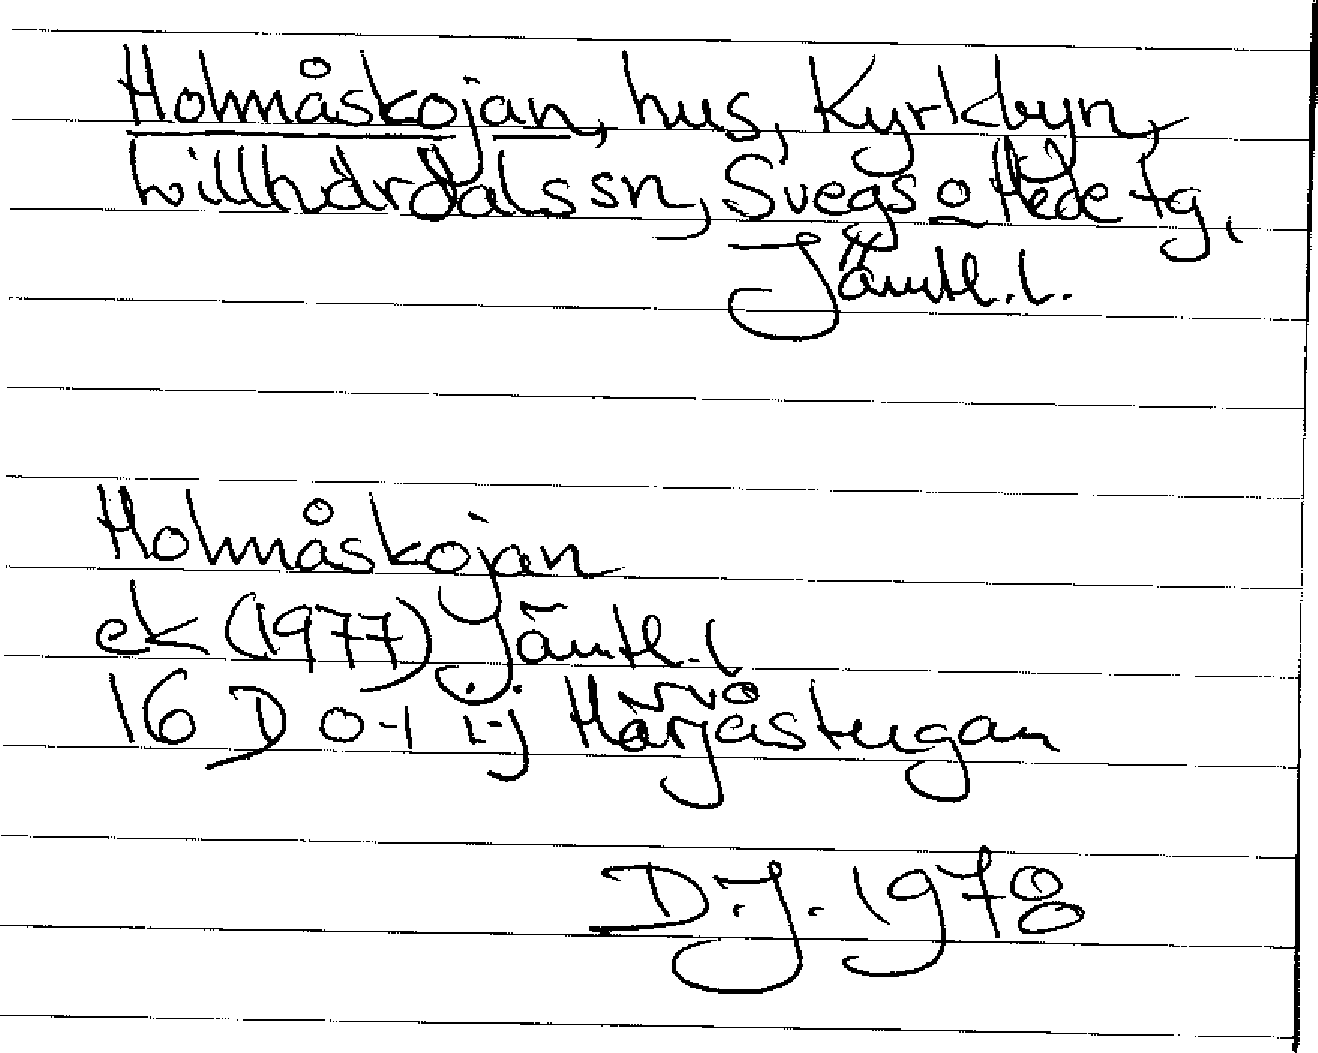 Holmåskojan, hus, Kyrkbyn,
Lillhärdals sn, Svegs o Hede tg,
Jämtl. l.
Holmåskojan
ek (1977) Jämtl. l
16 D 0-1 i-j Härjåstugan
D.J. 1978